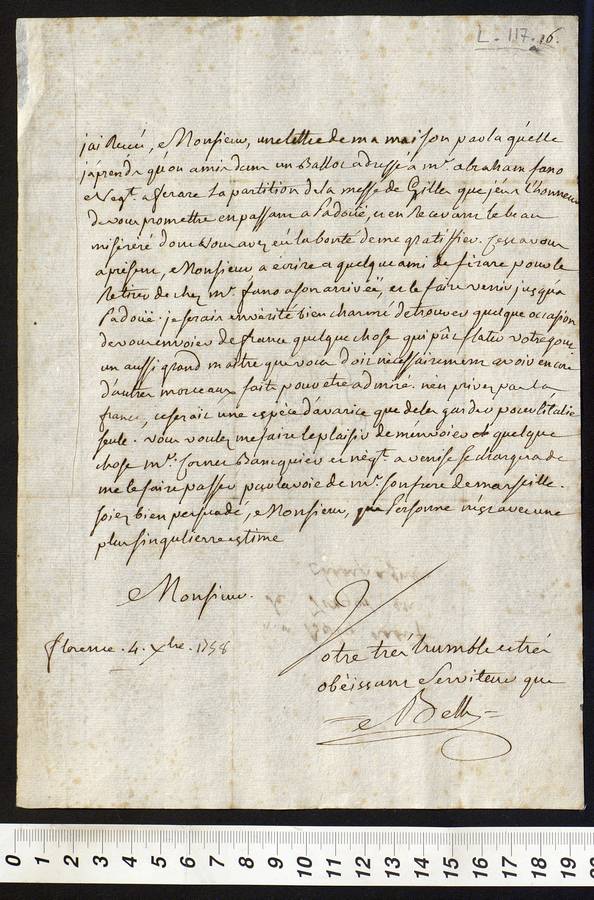 L. 117.16.
jai Receu, Monsieur, une lettre de ma maison par la quelle
japrends qu'on a mis dans un Ballot adressé a Mr. abraham fano
Negt. a ferare la partition de la messe de Gilles que j'eus l'honneur
de vous promettre en passant a Padoüe, et en Recevant le beau
miséréré dont vous avez eû la bonté de me gratiffier. C'est a vous
a présent, Monsieur a écrire a quelque ami de firare pour le
Retirer de chez Mr. fano a son arrivéë, et le faire venir jusqu'a
Padoüe. je serais en vérité bien charmé de trouver quelque occasion
de vous envoier de france quelque chose qui pût flater votre gout
un aussi grand maitre que vous doit nécessairement avoir encore
d'autres morceaux faits pour etre admiré. n'en priver pas la
france, ce serait une espèce d'avarice que de les garder pour l'italie
seule. vous voulez me faire le plaisir de m'envoier quelque
chose Mr. Corner Bancquier et négt. a venise se chargera de
me le faire passer par la voie de Mr. son frere de marseille.
soiez bien persuadé, Monsieur, que Personne n'est avec une
plus singulierre estime
Monsieur.
florence. 4. Xbre. 1758
Votre trés humble et trés
obéissant Serviteur que
Belli
0 1 2 3 4 5 6 7 8 9 10 11 12 13 14 15 16 17 18 19 20